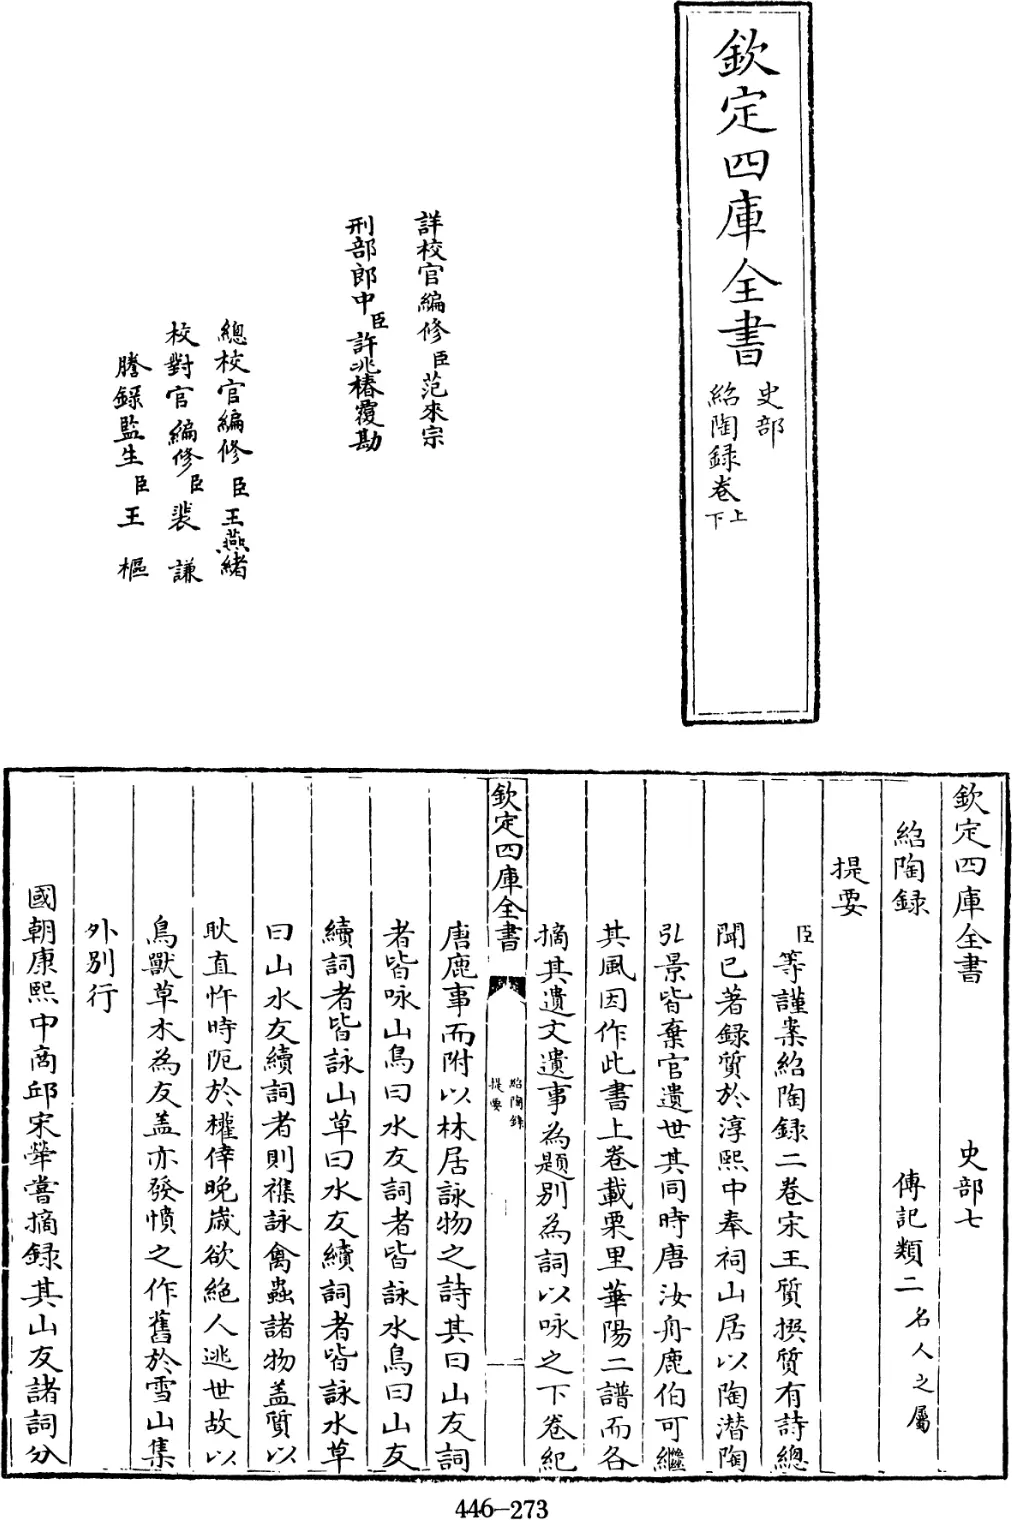 欽定四庫全書
史部
紹陶録卷上下
詳校官編修臣范來宗
刑部郎中臣許兆椿覆勘
總校官編修臣王燕緒
校對官編修臣裴謙
謄録監生臣王樞
欽定四庫全書 史部七
紹陶録 傳記類二名人之屬
提要
臣等謹案紹陶録二卷宋王質撰質有詩總
聞已著録質於淳熙中奉祠山居以陶潜陶
弘景皆棄官遺世其同時唐汝舟鹿伯可繼
其風因作此書上卷載栗里華陽二譜而各
摘其遺文遺事為題别為詞以咏之下卷紀
欽定四庫全書
紹陶録
提要
二
唐鹿事而附以林居詠物之詩其曰山友詞
者皆咏山鳥曰水友詞者皆詠水鳥曰山友
續詞者皆詠山草曰水友續詞者皆詠水草
曰山水友續詞者則襍詠禽蟲諸物盖質以
耿直忤時阨於權倖晚嵗欲絶人逃世故以
鳥獸草木為友盖亦發憤之作舊於雪山集
外别行
國朝康熙中商邱宋犖嘗摘録其山友諸詞分
446-273